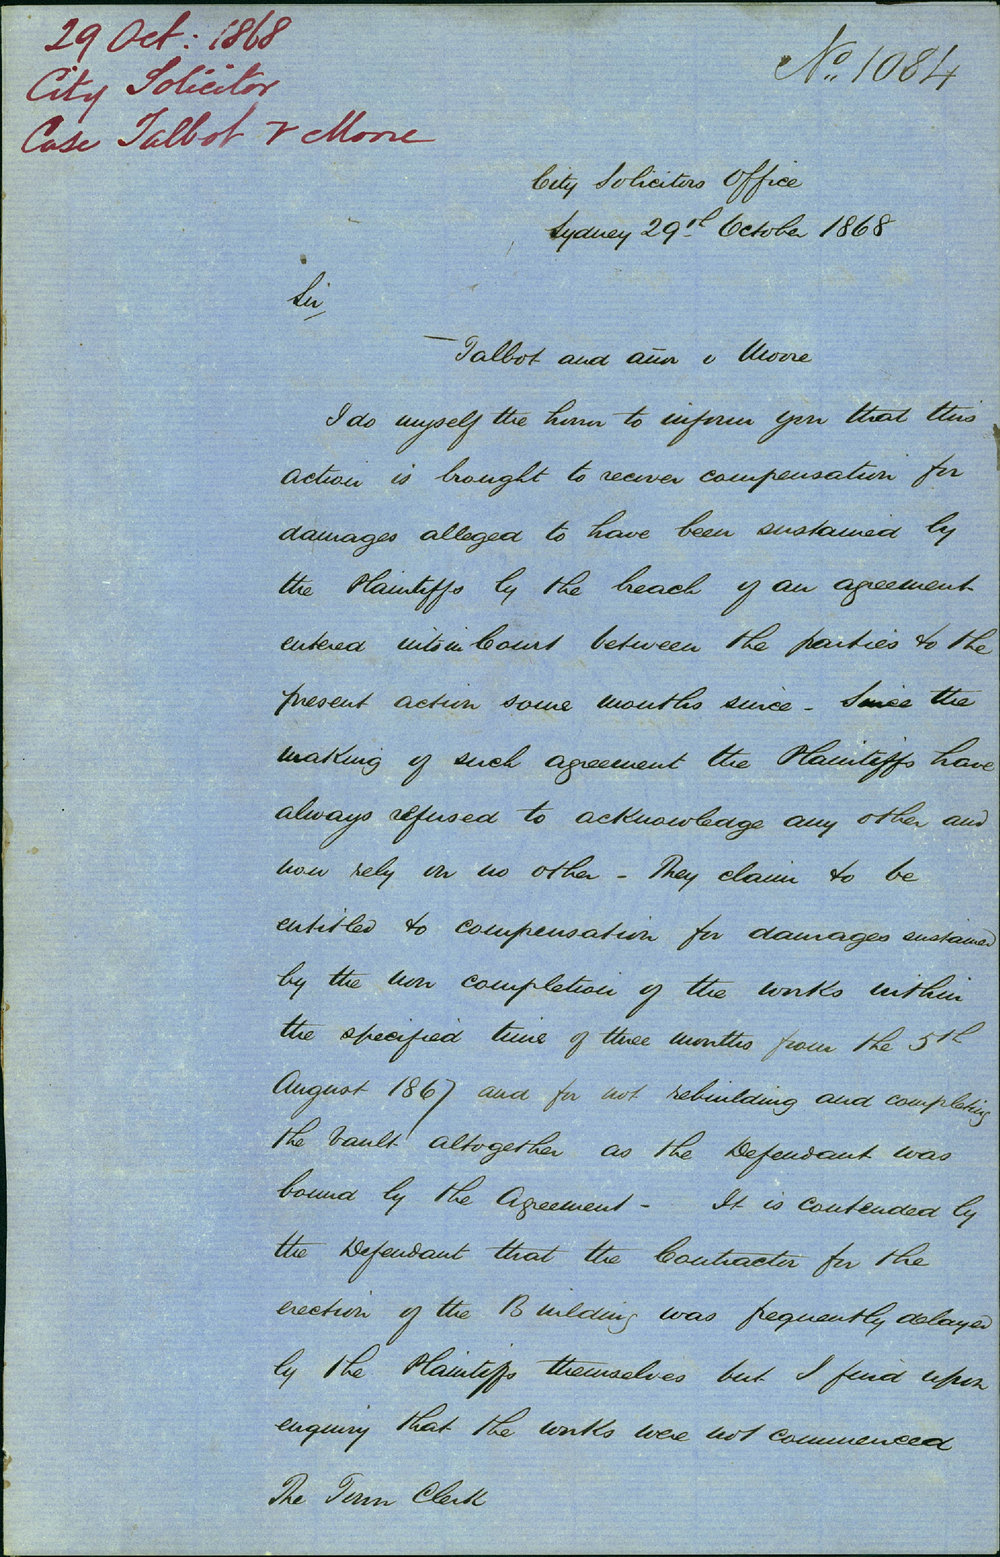 29 Oct: 1868
City Solicitor
Case Talbot v Moore
No. 1084
City Solicitors Office
Sydney 29th October 1868
Sir
Talbot and anor v Moore
I do myself the honor to inform you that this
action is brought to recover compensation for
damages alleged to have been sustained by
the Plaintiffs by the breach of an agreement
entered into in Court between the parties to the
present action some months since - Since the
making of such agreement the Plaintiffs have
always refused to acknowledge any other and
now rely on no other - They claim to be
entitled to compensation for damages sustained
by the non completion of the works within
the specified time of three months from the 5th
August 1867 and for not rebuilding and completing
the Vault altogether as the Defendant was
bound by the Agreement - It is contended by
the Defendant that the Contractor for the
erection of the Building was frequently delayed
by the Plaintiffs themselves but I find upon
enquiry that the works were not commenced
The Town Clerk